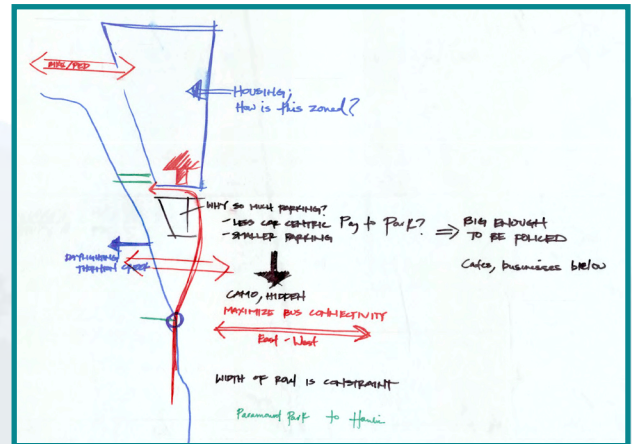 BIKE/PED
HOUSING;
How is this zoned?
WHY SO MUCH PARKING?
- LESS CAR CENTRIC
- SMALLER PARKING
Pay to Park?
⇒ BIG ENOUGH
TO BE POLICED
Cafes, businesses below
DAYLIGHTING
CREEK
CAMO, HIDDEN
MAXIMIZE BUS CONNECTIVITY
East - West
WIDTH OF ROW IS CONSTRAINT
Paramount Park to